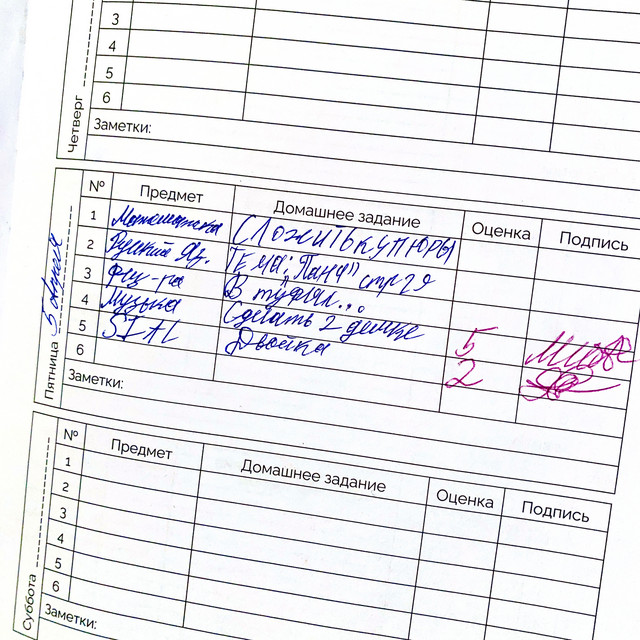 Четверг
3
4
5
6
Заметки:
Пятница 5
№ Предмет Домашнее задание Оценка Подпись
1 Математика Сложить купюры
2 Русский яз. Тема: "Пана" стр 29
3 Физ-ра В туфлях...
4 Музыка Сделать 2 демки 5
5 Двойка 2
6
Заметки:
Суббота
№ Предмет Домашнее задание Оценка Подпись
1
2
3
4
5
6
Заметки: